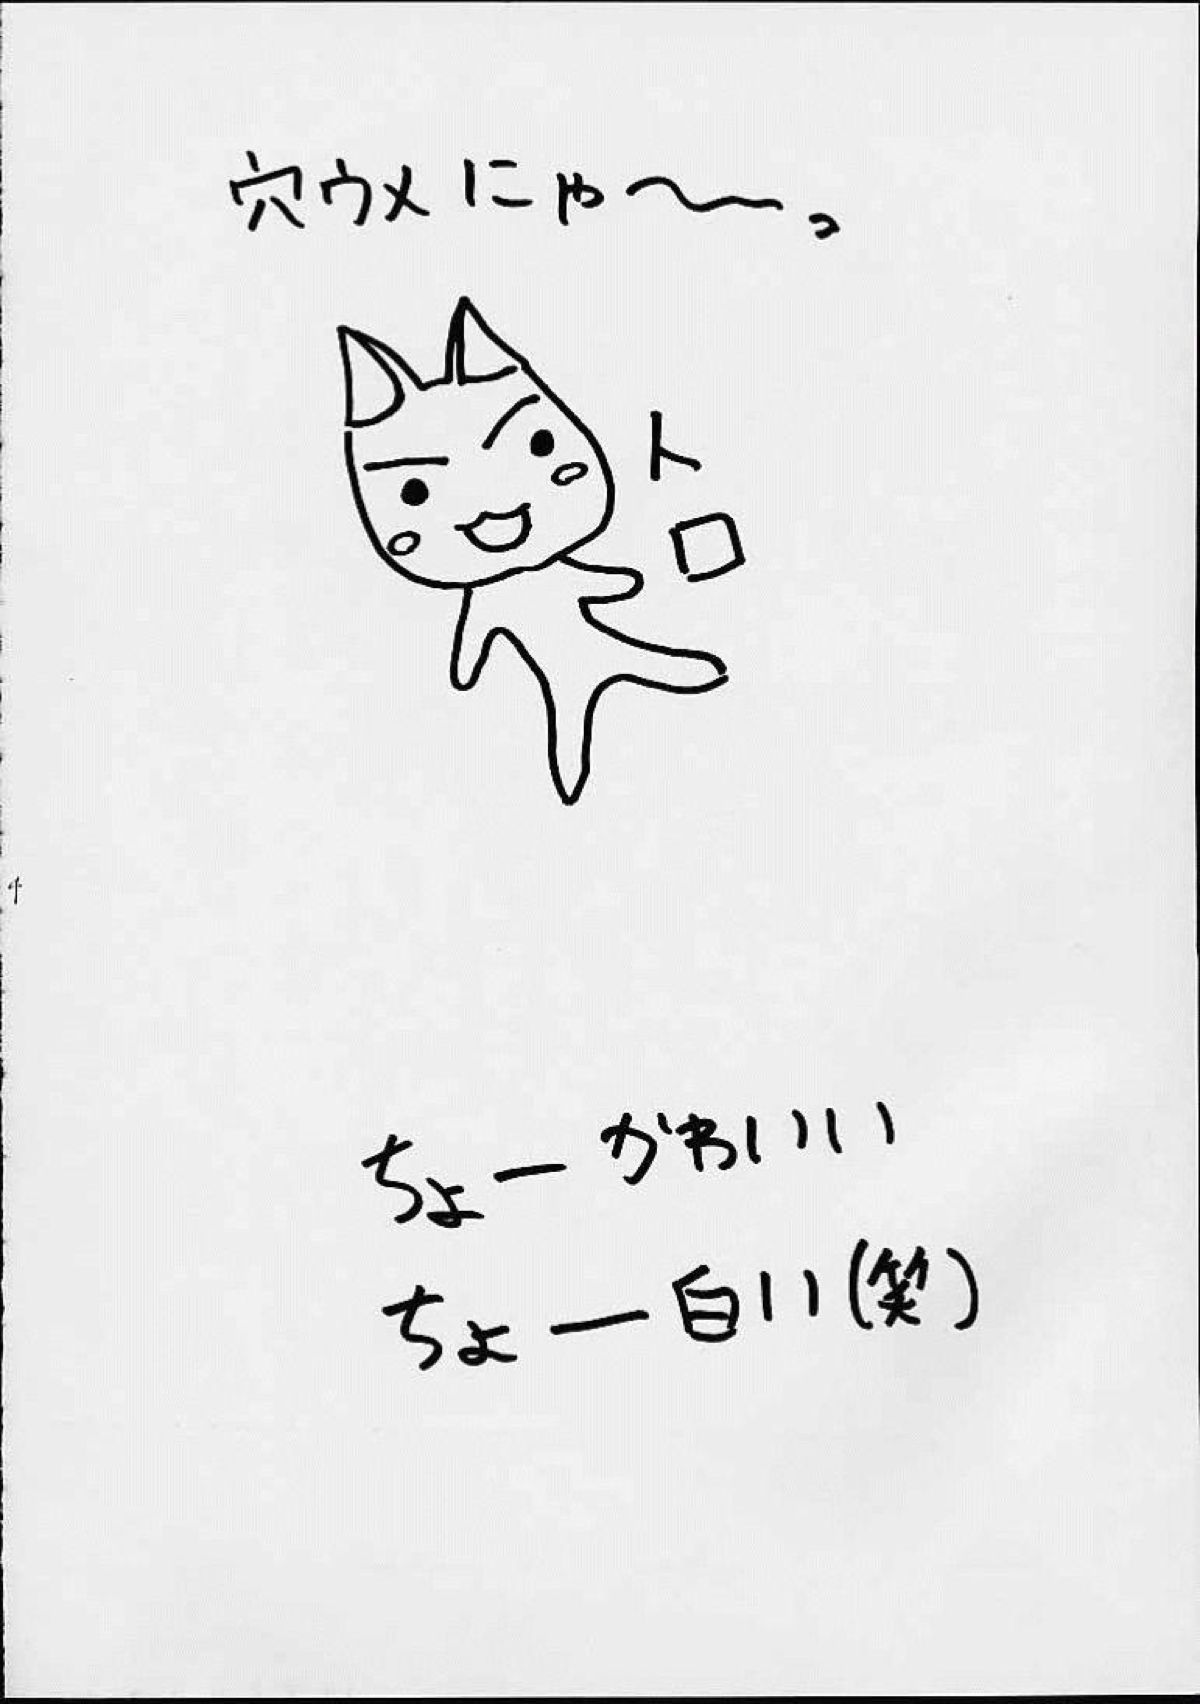 穴ウメにゃ〜〜っ
トロ
ちょーかわいいい
ちょー白いい(笑)